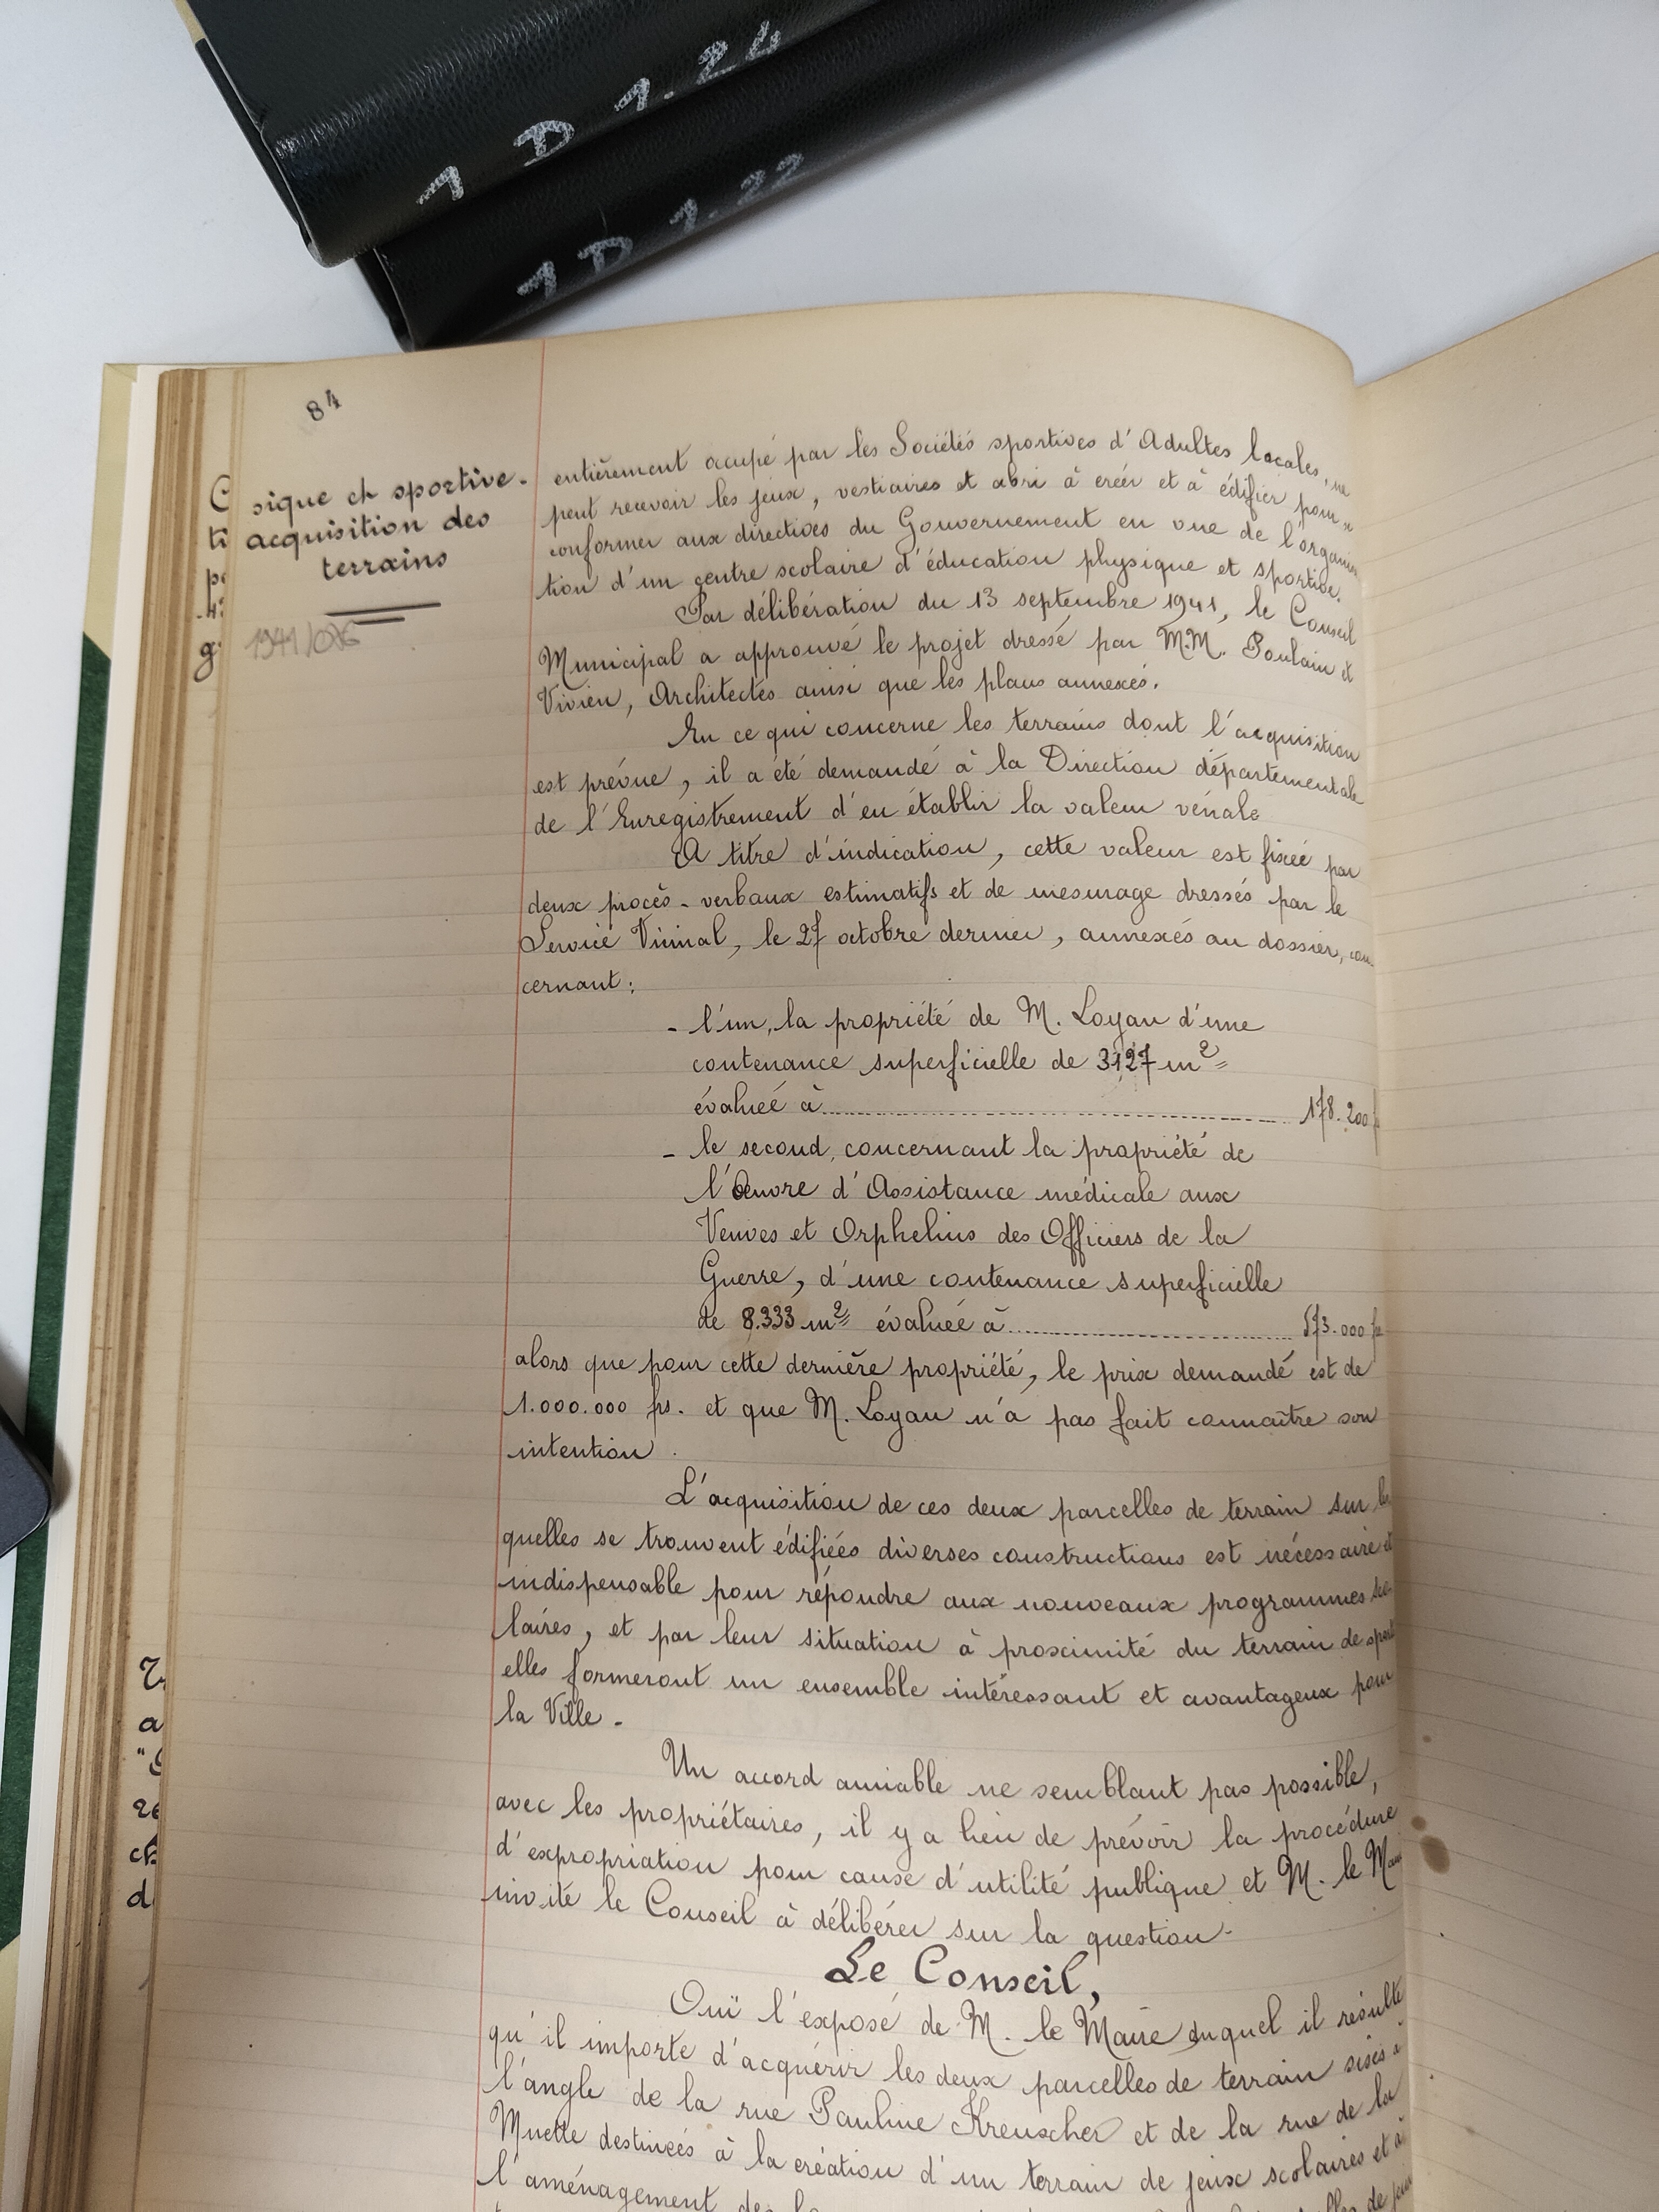 1 D 1.24
1 D 1.22
84
sique et sportive.
acquisition des
terrains
1941/086
entièrement occupé par les Sociétés sportives d'Adultes locales, ne
peut recevoir les jeux, vestiaires et abri à créer et à édifier pour
conformer aux directives du Gouvernement en vue de l'organisa
tion d'un centre scolaire d'éducation physique et sportive.
Par délibération du 13 septembre 1941, le Conseil
Municipal a approuvé le projet dressé par M.M. Poulain et
Vivien, Architectes ainsi que les plans annexés.
En ce qui concerne les terrains dont l'acquisition
est prévue, il a été demandé à la Direction départementale
de l'Enregistrement d'en établir la valeur vénale
A titre d'indication, cette valeur est fixée par
deux procès-verbaux estimatifs et de mesurage dressés par le
Service Vicinal, le 27 octobre dernier, annexés au dossier, con-
cernant:
- l'un, la propriété de M. Loyau d'une
contenance superficielle de 3127 m²
évaluée à 178.200 f
- le second, concernant la propriété de
l'Œuvre d'Assistance médicale aux
Veuves et Orphelins des Officiers de la
Guerre, d'une contenance superficielle
de 8.333 m² évaluée à 573.000 frs
alors que pour cette dernière propriété, le prix demandé est de
1.000.000 frs. et que M. Loyau n'a pas fait connaître son
intention.
L'acquisition de ces deux parcelles de terrain sur les
quelles se trouvent édifiées diverses constructions est nécessaire et
indispensable pour répondre aux nouveaux programmes sco
laires, et par leur situation à proximité du terrain de sport
elles formeront un ensemble intéressant et avantageux pour
la Ville.
Un accord amiable ne semblant pas possible,
avec les propriétaires, il y a lieu de prévoir la procédure
d'expropriation pour cause d'utilité publique et M. le Maire
invite le Conseil à délibérer sur la question.
Le Conseil,
Ouï l'exposé de M. le Maire duquel il résulte
qu'il importe d'acquérir les deux parcelles de terrain sises à
l'angle de la rue Pauline Kreuscher et de la rue de la
Muette destinées à la création d'un terrain de jeux scolaires et à
l'aménagement de